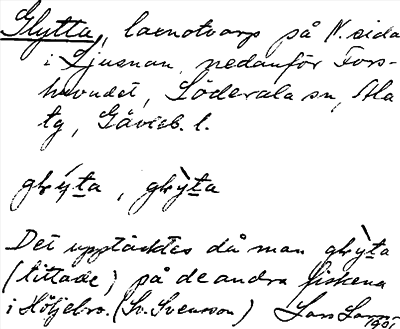 Glytta, laxnotvarp på N. sida
i Ljusnan, nedanför Fors-
huvudet, Söderala sn, Ala
tg, Gävleb. l.
glýta, glỳta
Det upptäcktes då man glỳta
(tittade) på de andra fiskena
i Höljebro. (Sv. Svensson) Lars
1901